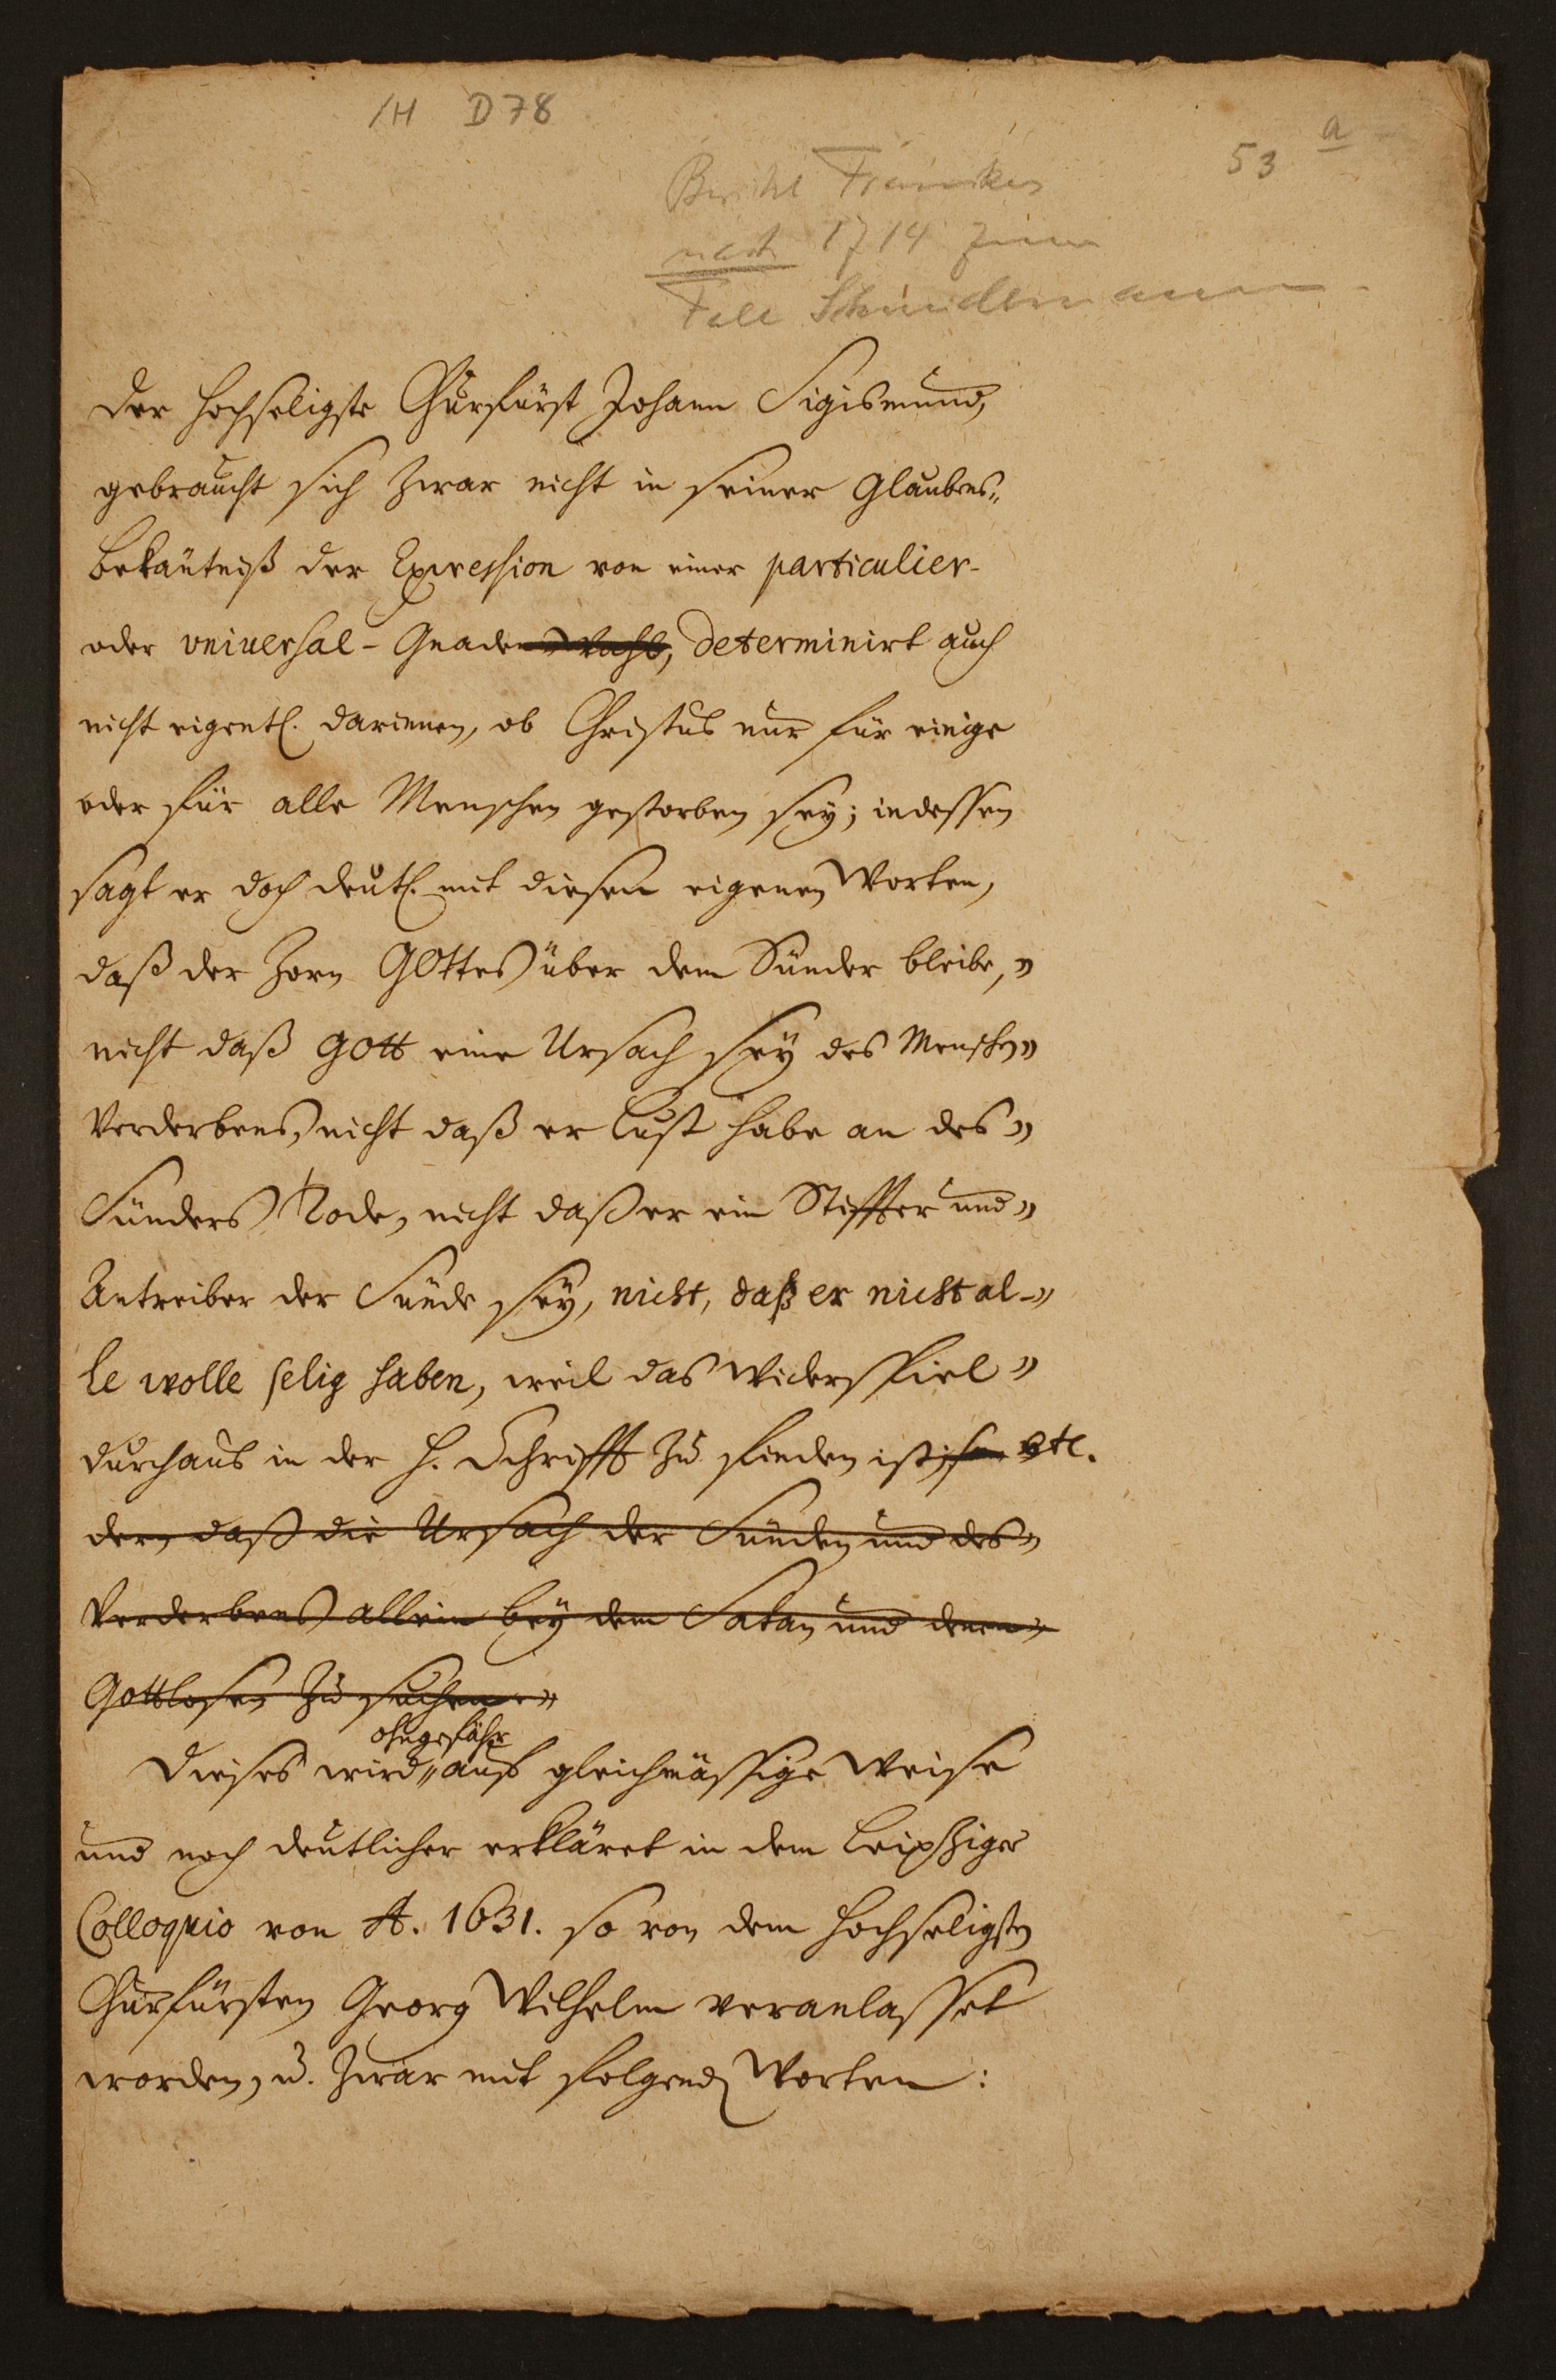 1H D78
53 a
Bericht Franckes
nach 1714 zum
Fall Schmidtmann
Der Hochseligste Churfürst Johann Sigismund,
gebraucht sich zwar nicht in seiner Glaubens„
bekäntniß der Expression von einer particulier-
oder vniuersal-Gnadenwahl, determinirt auch
nicht eigentl. darinnen, ob Christus nur für einige
oder für alle Menschen gestorben sey; indessen
sagt er doch deutl. mit diesen eigenen Worten,
daß der Zorn GOttes über dem Sünder bleibe, „
nicht daß Gott eine Ursach sey des Menschen „
Verderbens, nicht daß er Lust habe an des „
Sünders Tode, nicht daß er ein Stiffter und „
Antreiber der Sünde sey, nicht, daß er nicht al- „
le wolle selig haben, weil das Widerspiel „
durchaus in der H. Schrifft zu finden ist; son etc.
dern daß die Ursach der Sünden und des „
Verderbens allein bey dem Satan und denen „
Gottlosen zu suchen. „
ohngefähr
Dieses wird „ auf gleichmässige Weise
und noch deutlicher erkläret in dem Leipziger
Colloquio von A. 1631. so von dem Hochseligsten
Churfürsten Georg Wilhelm veranlasset
worden, u. zwar mit folgenden Worten: